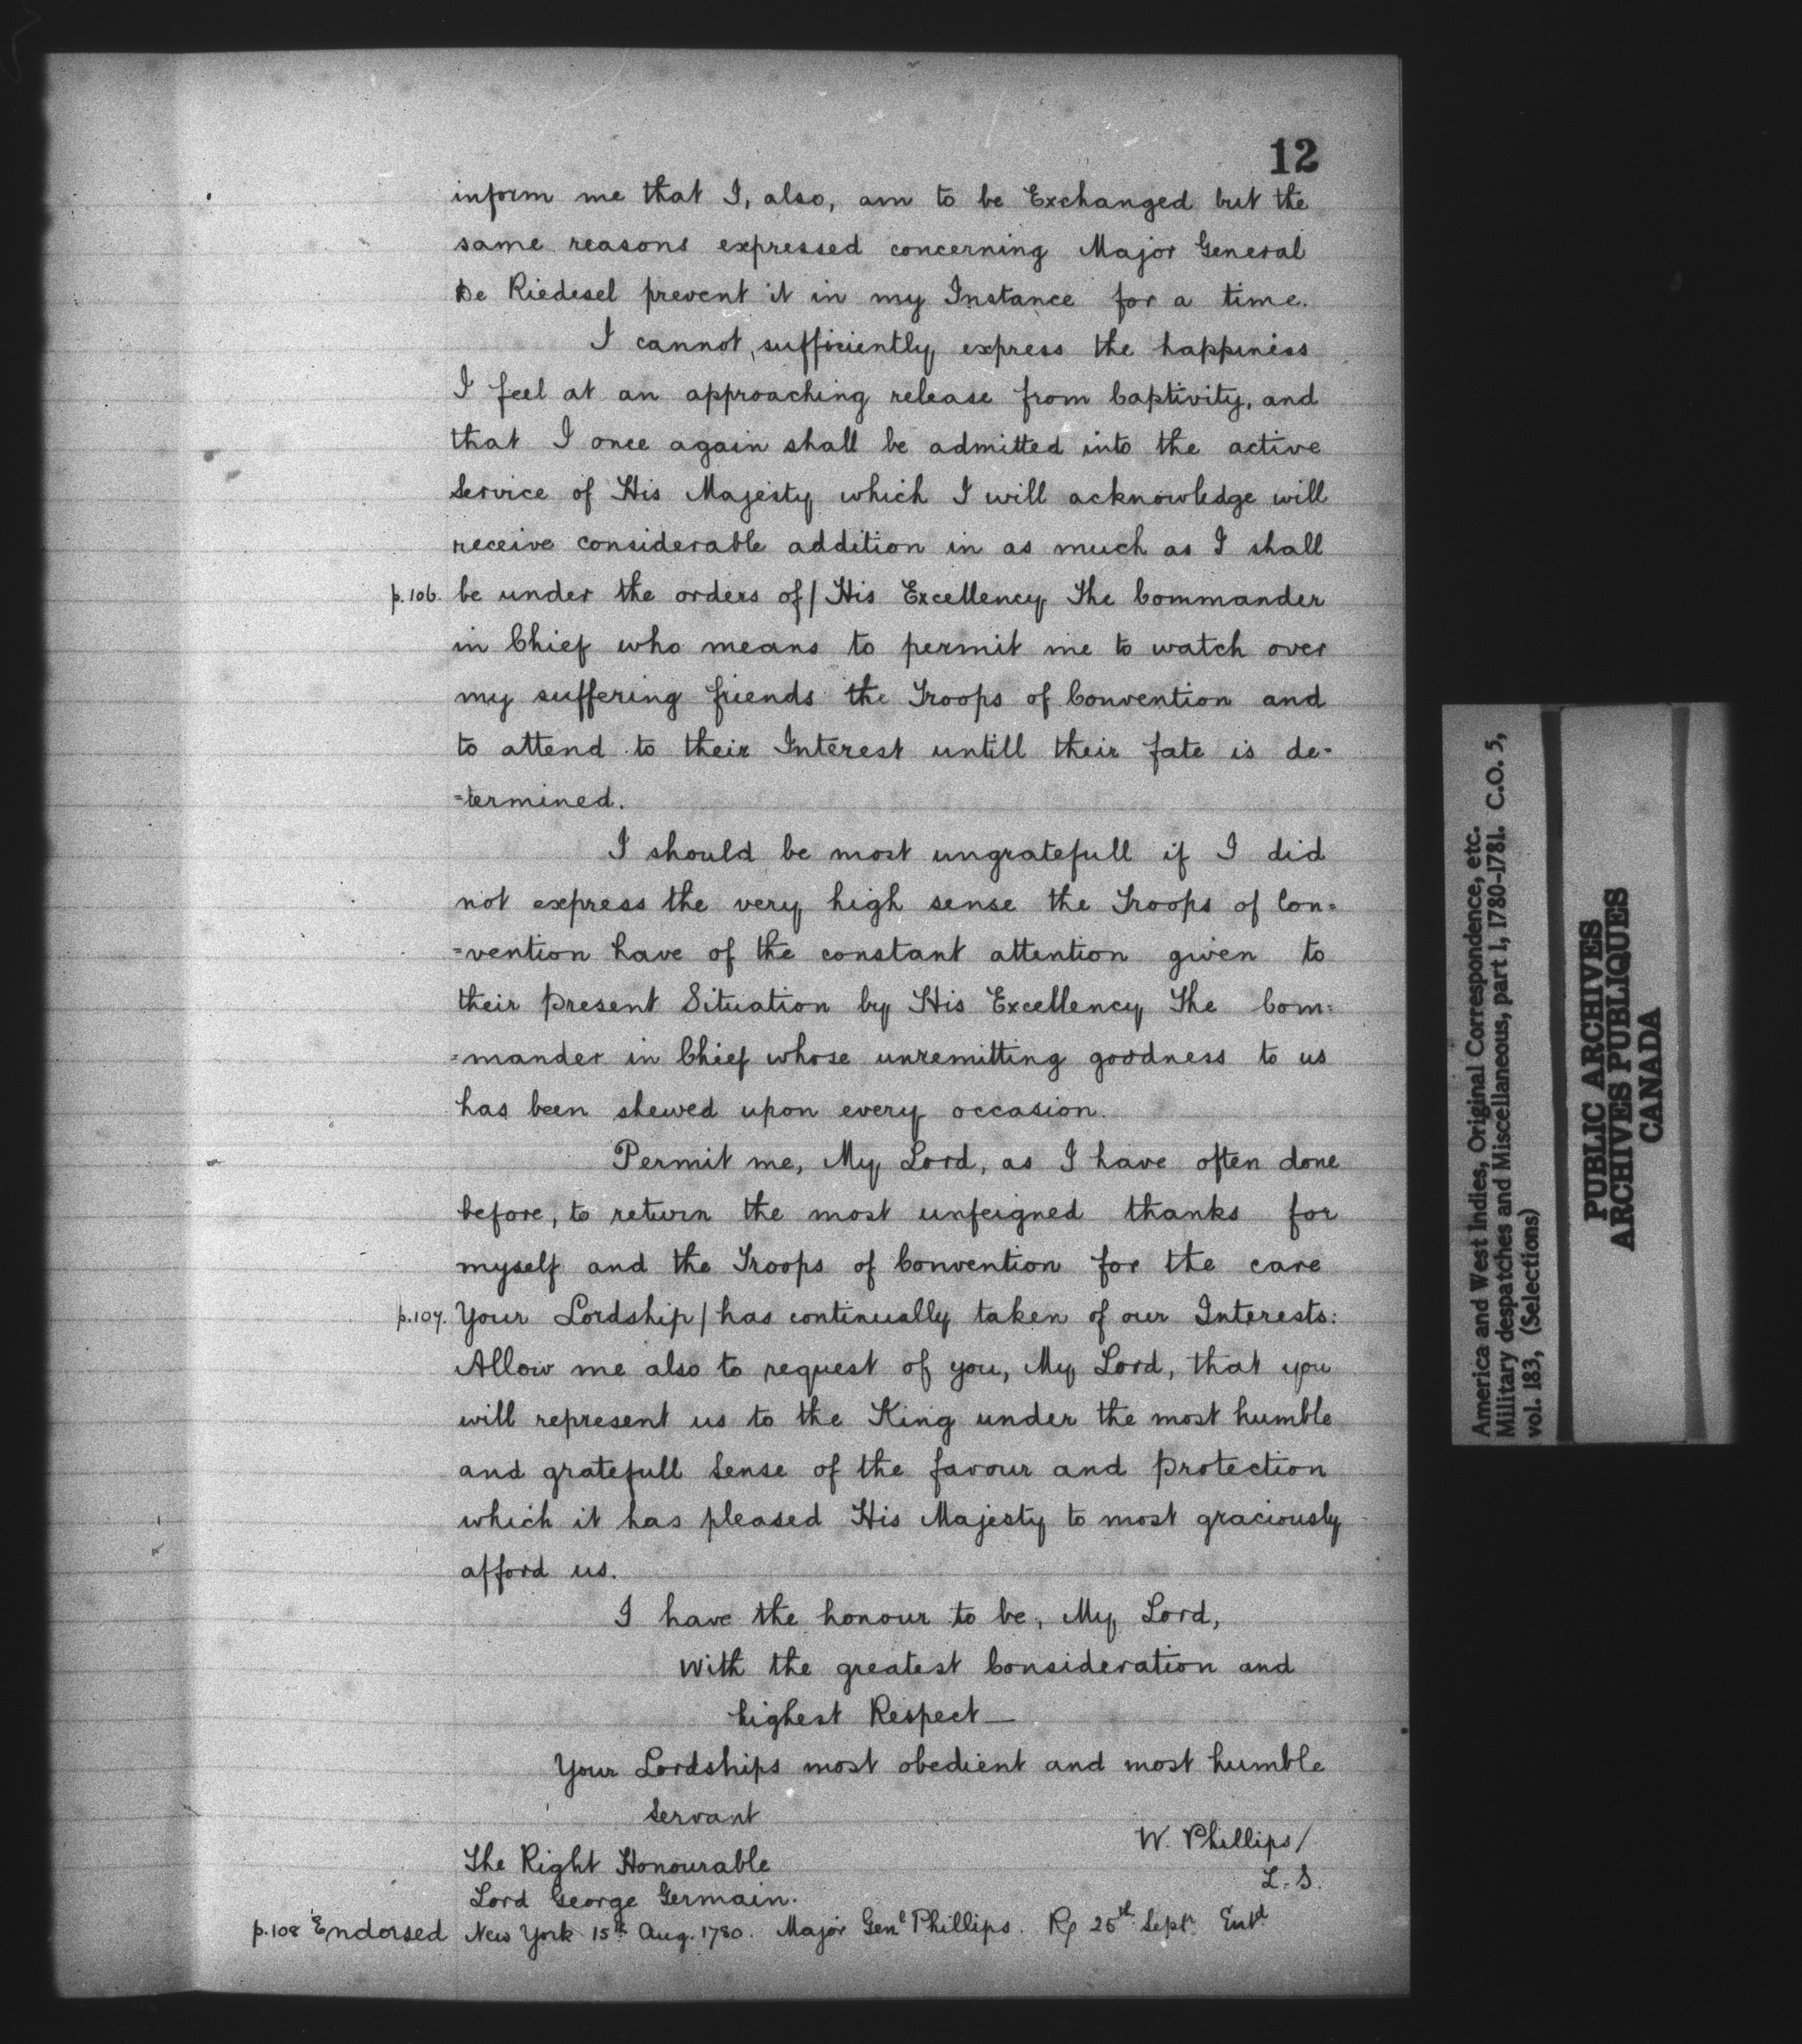 12
inform me that I, also, am to be Exchanged but the
same reasons expressed concerning Major General
De Riedesel prevent it in my Instance for a time.
I cannot, sufficiently, express the happiness
I feel at an approaching release from Captivity, and
that I once again shall be admitted into the active
Service of His Majesty which I will acknowledge will
receive considerable addition in as much as I shall
p.106. be under the orders of/His Excellency The Commander
in Chief who means to permit me to watch over
my suffering friends the Troops of Convention and
to attend to their Interest untill their fate is de=
=termined.
I should be most ungratefull if I did
not express the very high sense the Troops of Con=
=vention have of the constant attention given to
their present Situation by His Excellency The Com=
=mander in Chief whose unremitting goodness to us
has been shewed upon every occasion.
Permit me, My Lord, as I have often done
before, to return the most unfeigned thanks for
myself and the Troops of Convention for the care
p.107. Your Lordship/has continually taken of our Interests:
Allow me also to request of you, My Lord, that you
will represent us to the King under the most humble
and gratefull Sense of the favour and protection
which it has pleased His Majesty to most graciously
afford us.
I have the honour to be, My Lord,
With the greatest Consideration and
highest Respect—
Your Lordships most obedient and most humble
Servant
W. Phillips/
L.S.
The Right Honourable
Lord George Germain.
p.108 Endorsed New York 15th Aug. 1780. Major Genl Phillips. R 25th Septr Entd
America and West Indies, Original Correspondence, etc.
Military despatches and Miscellaneous, part 1, 1780-1781. C.O. 5,
vol. 183, (Selections)
PUBLIC ARCHIVES
ARCHIVES PUBLIQUES
CANADA